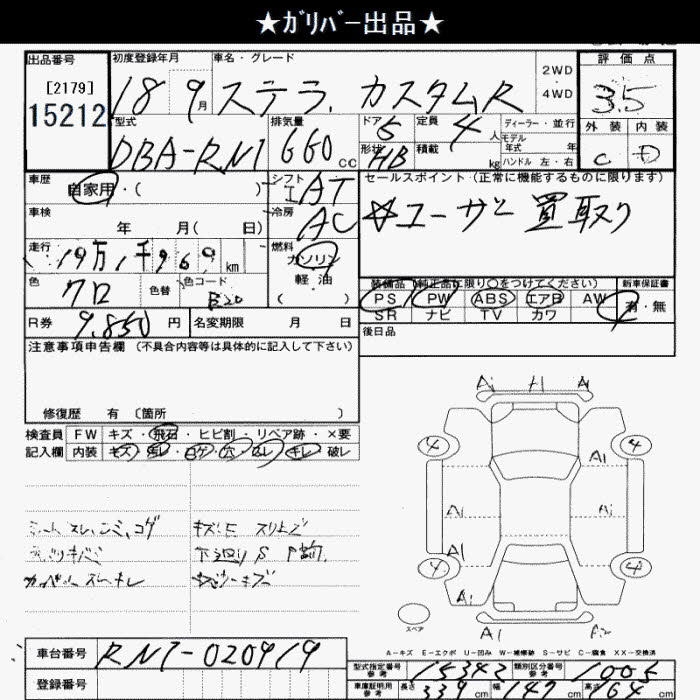 ★ｶﾞﾘﾊﾞｰ出品★
出品番号
[2179]
15212
初度登録年月
18 9月
車名・グレード
ステラ、カスタムR
2WD
4WD
評価点
3.5
外装 内装
C D
型式
DBA-RN1
排気量
660cc
ドア 5
定員 4人
形状 HB
積載 kg
ディーラー・並行
モデル年式 年
ハンドル 左・右
車歴
自家用・( )
シフト
AT
冷房
AC
車検
年 月( 日)
走行
19万1千969km
燃料
ガソリン
軽油
色
クロ
色替
色コード
R券
9.850円
名変期限 月 日
セールスポイント(正常に機能するものに限ります)
☆ユーザー買取り
装備品(純正品に限り○をつけてください)
PS PW ABS エアB AW
SR ナビ TV カワ
新車保証書
有・無
後日品
注意事項申告欄(不具合内容等は具体的に記入して下さい)
修復歴 有〔箇所 〕
検査員
記入欄
FW キズ・飛石・ヒビ割・リペア跡・×要
内装 キズ・汚レ・コゲ・穴・スレ・キレ・破レ
シート スレ、シミ、コゲ
A1 H A1
4 4
A1
A1 A1
A1
4 4
A1 A1
スペア
A1
A-キズ E-エクボ U-凹み W-補修跡 S-サビ C-腐食 XX-交換済
車台番号
RN1-020919
登録番号
型式指定番号
参考
15342
類別区分番号
参考
1005
車庫証明用
参考
長さ 339cm
幅 147cm
高さ 164cm